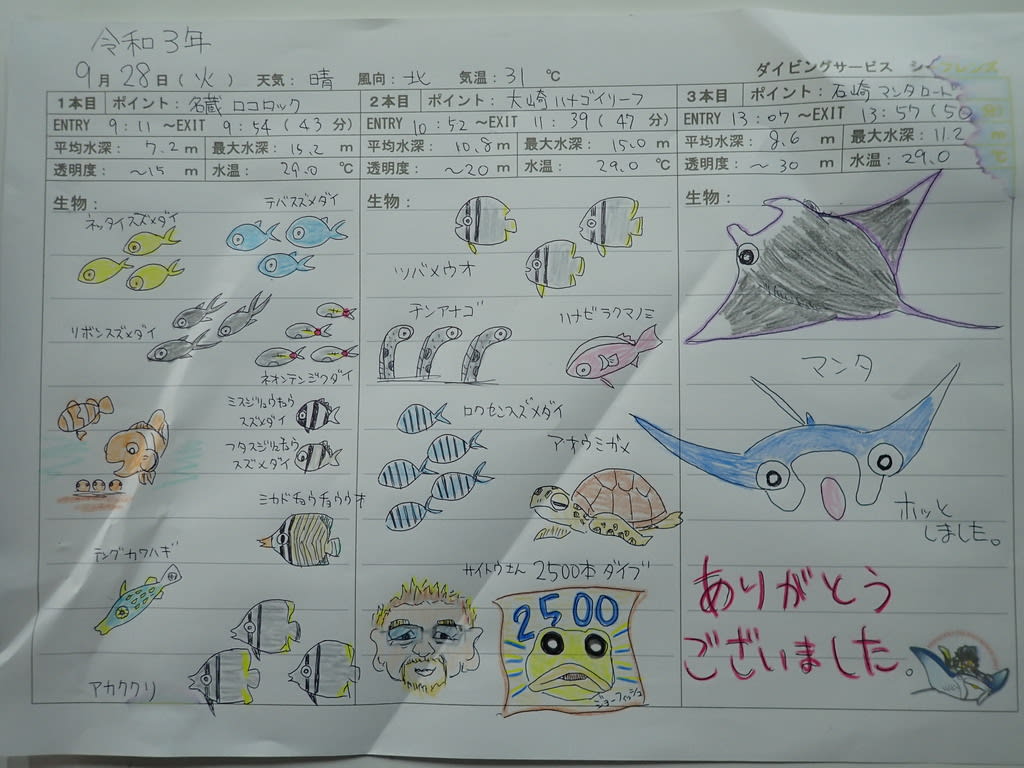 令和3年
9月28日(火) 天気:晴 風向:北 気温:31 ℃
ダイビングサービス シーフレンズ
1本目 ポイント:名蔵 ロコロック
ENTRY 9:11 ~EXIT 9:54(43分)
平均水深: 7.2 m 最大水深: 15.2 m
透明度: ~15 m 水温: 29.0 ℃
生物:
デバスズメダイ
ネッタイスズメダイ
リボンスズメダイ
ネオンテンジクダイ
ミスジリュウキュウ
スズメダイ
フタスジリュウキュウ
スズメダイ
ミカドチョウチョウウオ
テングカワハギ
アカククリ
2本目 ポイント:大崎 ハナゴイリーフ
ENTRY 10:52 ~EXIT 11:39(47分)
平均水深: 10.8 m 最大水深: 15.0 m
透明度: ~20 m 水温: 29.0 ℃
生物:
ツバメウオ
チンアナゴ
ハナビラクマノミ
ロクセンスズメダイ
アオウミガメ
サイトウさん 2500本ダイブ
2500
ジョーフィッシュ
3本目 ポイント:石崎 マンタロード
ENTRY 13:07 ~EXIT 13:57(50分)
平均水深: 8.6 m 最大水深: 11.2 m
透明度: ~30 m 水温: 29.0 ℃
生物:
マンタ
ホッと
しました。
ありがとう
ございました。